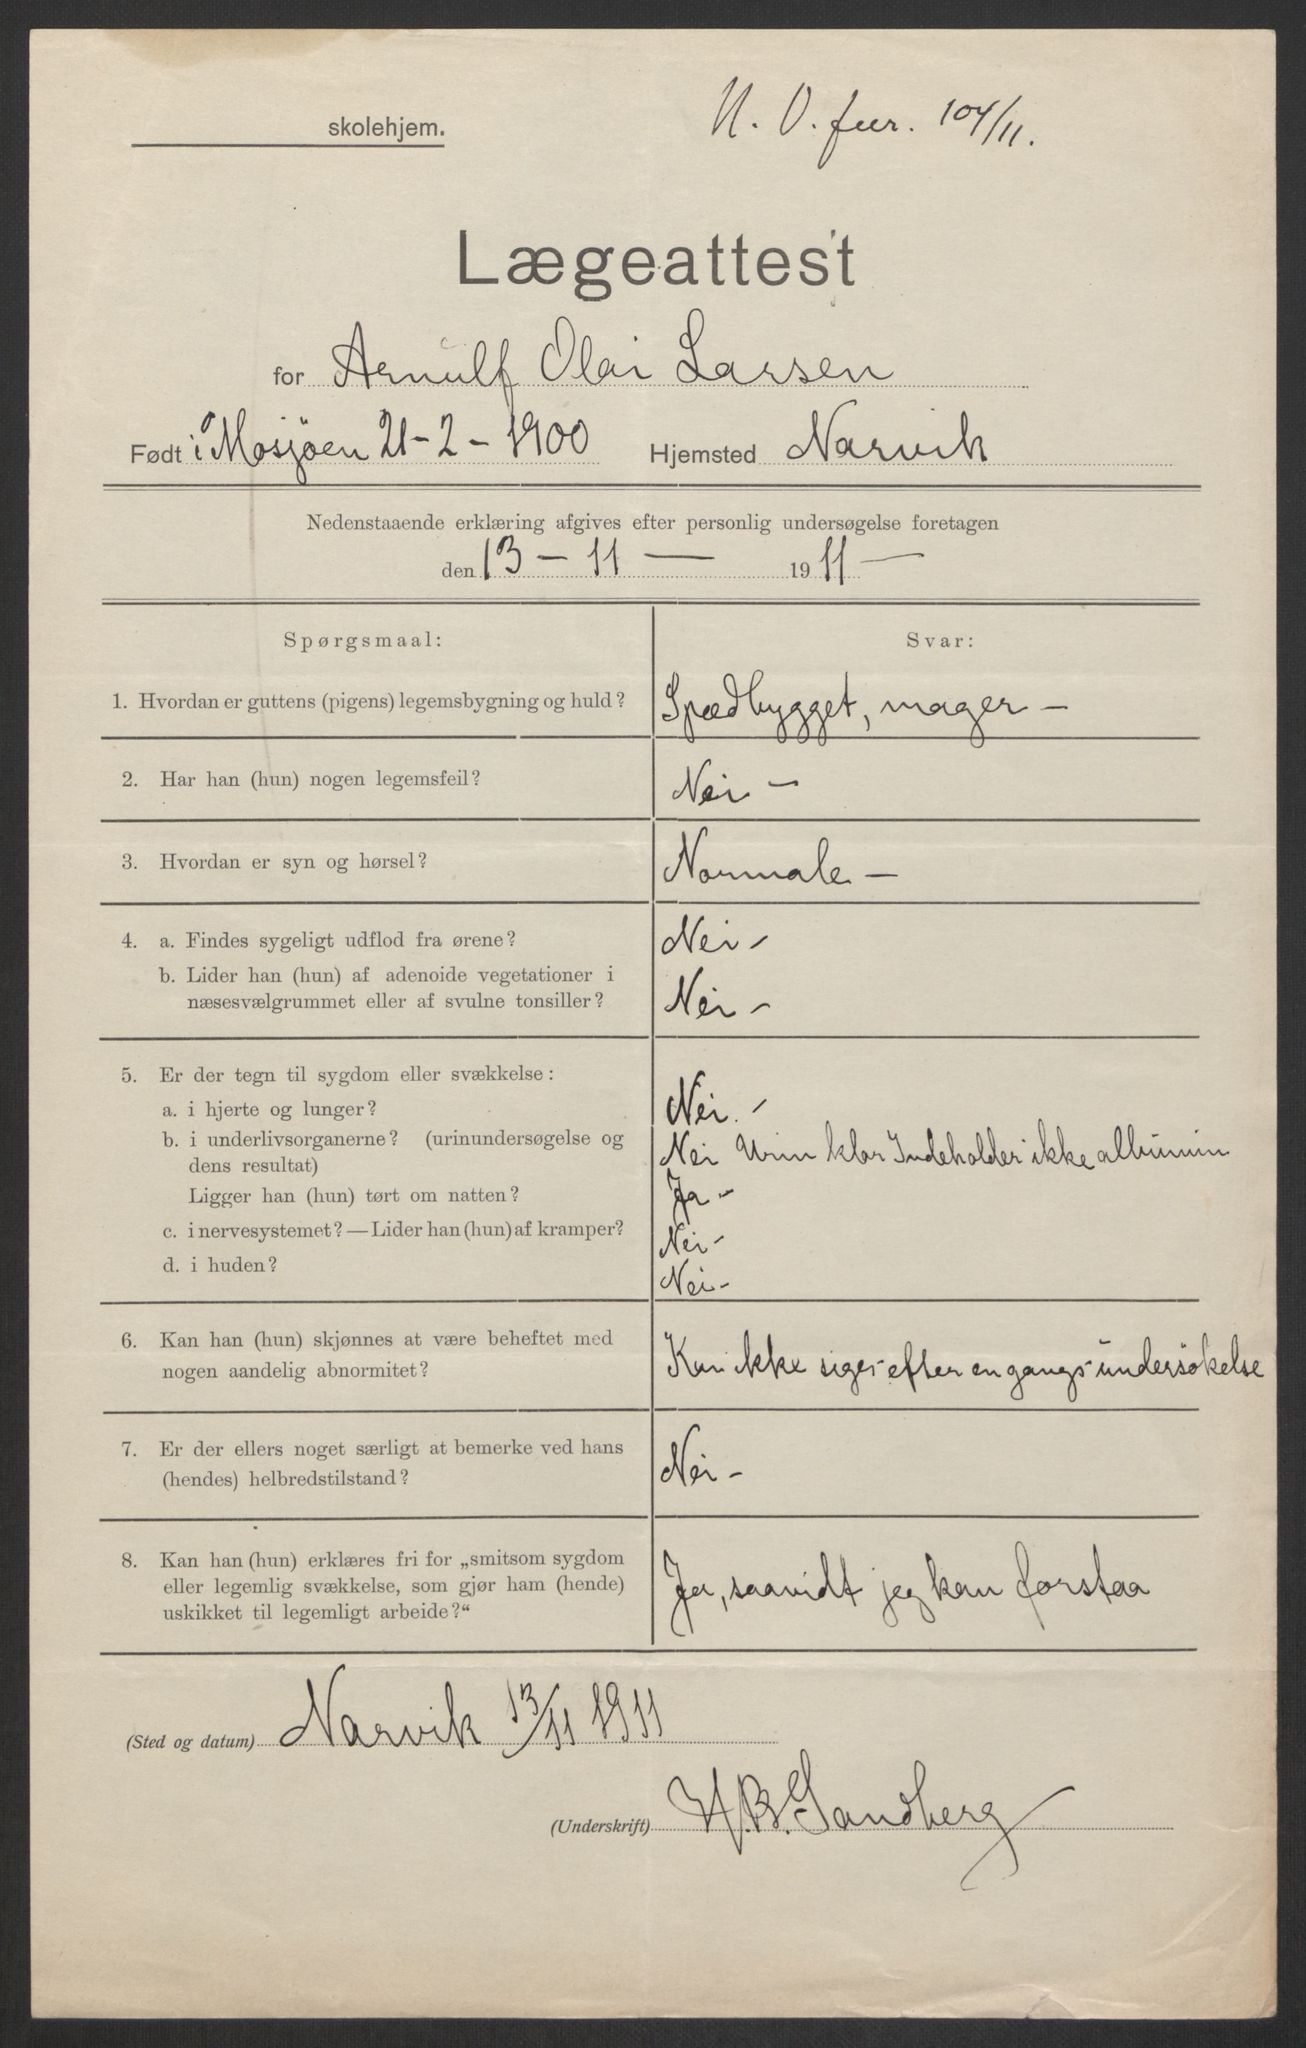 skolehjem.
N. O. fur. 104/11.
Lægeattest
for Arnulf Olai Larsen
Født i Mosjøen 21-2-1900 Hjemsted Narvik
Nedenstaaende erklæring afgives efter personlig undersøgelse foretagen
den 13 - 11 — 1911 —
Spørgsmaal: Svar:
1. Hvordan er guttens (pigens) legemsbygning og huld? Spædbygget, mager —
2. Har han (hun) nogen legemsfeil? Nei —
3. Hvordan er syn og hørsel? Normale —
4. a. Findes sygeligt udflod fra ørene? Nei -
b. Lider han (hun) af adenoide vegetationer i
næsesvælgrummet eller af svulne tonsiller? Nei -
5. Er der tegn til sygdom eller svækkelse:
a. i hjerte og lunger? Nei. -
b. i underlivsorganerne? (urinundersøgelse og Nei Urin klar Indeholder ikke albumin
dens resultat)
Ligger han (hun) tørt om natten? Ja -
c. i nervesystemet? — Lider han (hun) af kramper? Nei -
d. i huden? Nei -
6. Kan han (hun) skjønnes at være beheftet med
nogen aandelig abnormitet? Kan ikke siges efter en gangs undersøkelse
7. Er der ellers noget særligt at bemerke ved hans
(hendes) helbredstilstand? Nei -
8. Kan han (hun) erklæres fri for „smitsom sygdom
eller legemlig svækkelse, som gjør ham (hende) Ja, saavidt jeg kan forstaa
uskikket til legemligt arbeide?“
(Sted og datum) Narvik 13/11 1911
(Underskrift) H.B. Sandberg